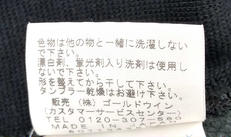 色物は他の物と一緒に洗濯しない
で下さい。
漂白剤、蛍光剤入り洗剤は使用し
ないで下さい。
形を整えてから干して下さい。
タンブラー乾燥はお避け下さい。
販売 (株) ゴールドウイン
(カスタマーサービスセンター)
TEL 0120-307-560
MADE IN